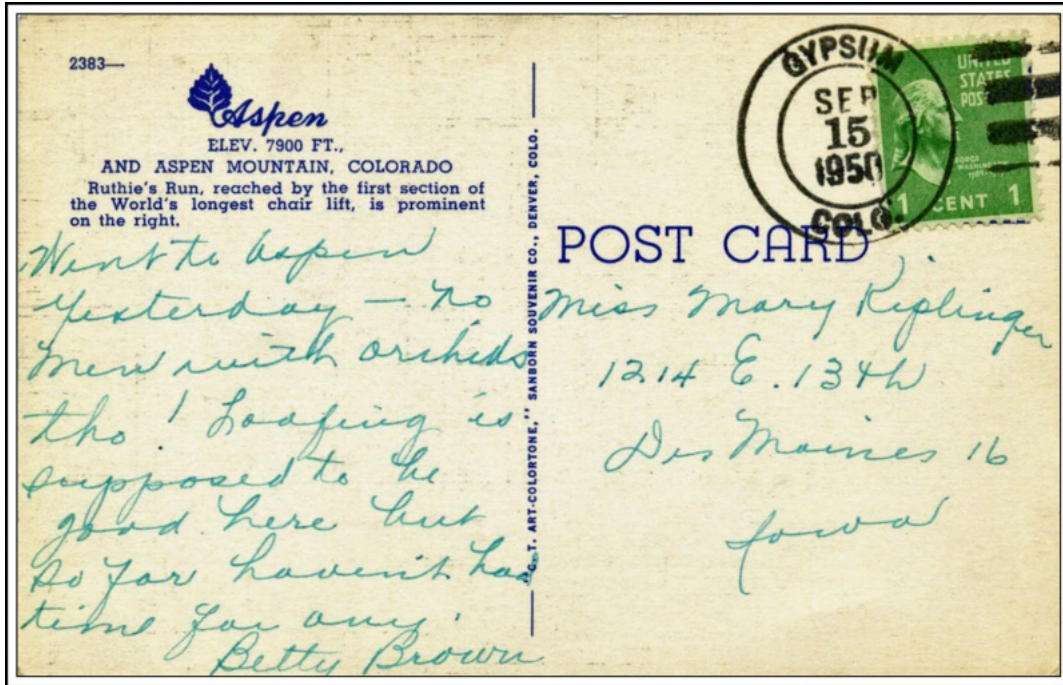 2383—
Aspen
ELEV. 7900 FT.,
AND ASPEN MOUNTAIN, COLORADO
Ruthie's Run, reached by the first section of
the World's longest chair lift, is prominent
on the right.
Went to Aspen
Yesterday — no
men with orchids
tho! Loafing is
supposed to be
good here but
so far haven't had
time for any.
Betty Brown
"C. T. ART-COLORTONE," SANBORN SOUVENIR CO., DENVER, COLO.
GYPSUM
SEP
15
1950
COLO.
UNITED
STATES
POST
GEORGE
WASHINGTON
1 CENT 1
POST CARD
Miss Mary Kiplinger
1214 E. 13th
Des Moines 16
Iowa